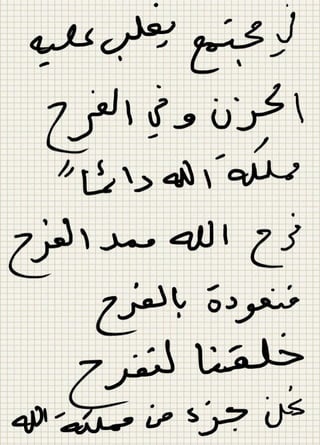 في مجتمع يغلب عليه
الحزن وفي الفرح
مملكة الله دائماً
فرح الله الفرح
بالفرح
خلقنا لنفرح
نحن جزء من مملكة الله